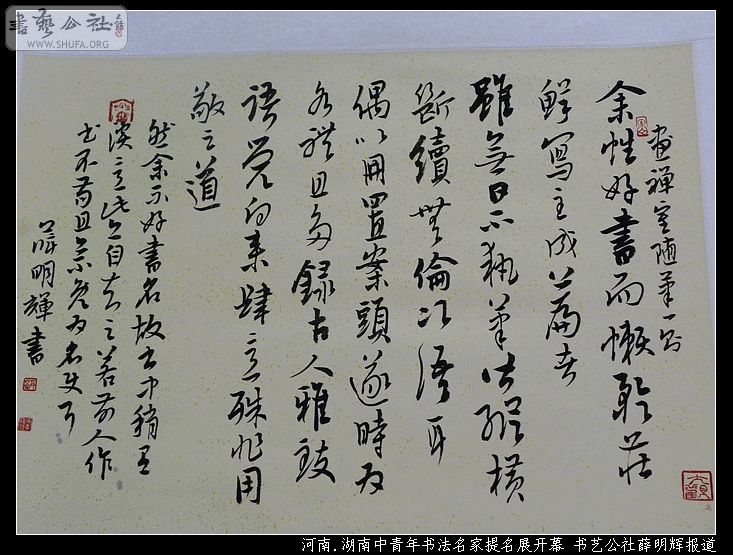 書藝公社
WWW.SHUFA.ORG
畫禪室随筆一則
余性好書而懶矜莊
鮮寫至成篇者
雖無日不執筆皆縱橫
斷續無倫次語耳
偶以冊置案頭遂時為
各體且多録古人雅致
語覺向來肆意殊非用
敬之道
然余不好書名故書中稍有
淡意此亦自知之若前人作
書不苟且亦不免為名使耳
薛明輝書
河南.湖南中青年书法名家提名展开幕 书艺公社薛明辉报道